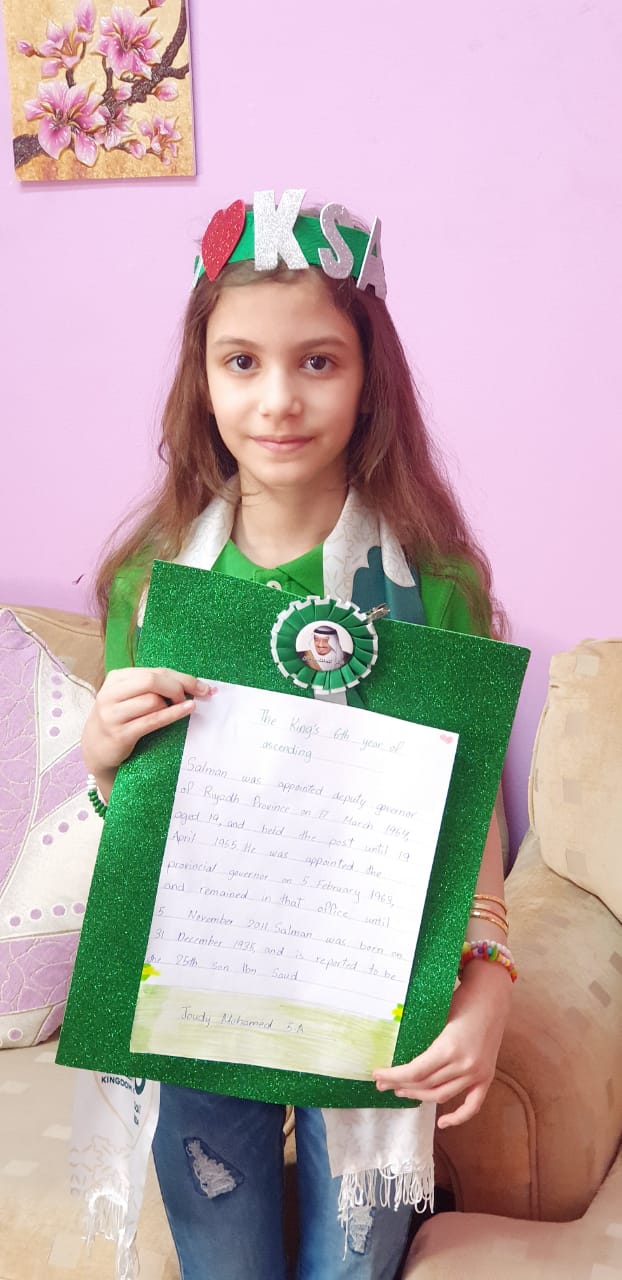 KSA
The King's 6th year of
ascending
Salman was appointed deputy governor
of Riyadh Province on 17 March 1954,
aged 19, and held the post until 19
April 1955. He was appointed the
provincial governor on 5 February 1963,
and remained in that office until
5 November 2011. Salman was born on
31 December 1935, and is reported to be
the 25th son Ibn Saud
Joudy Mohamed 5.A
KINGDOM